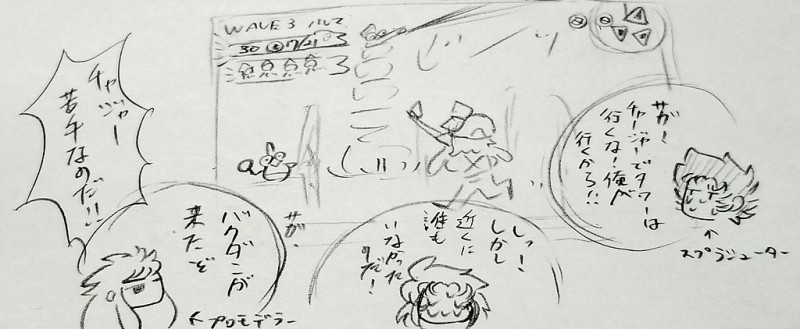 WAVE 3 ノルマ
30 17/21
サガ〜
チャージャーでタワーは
行くな!俺が
行くから!!
←スプラシューター
チャージャー
苦手なのだ!!
サガ、
バクダンが
来たぞ
←プロモデラー
しっ!
しかし
近くに
誰も
いなかった
のだ!